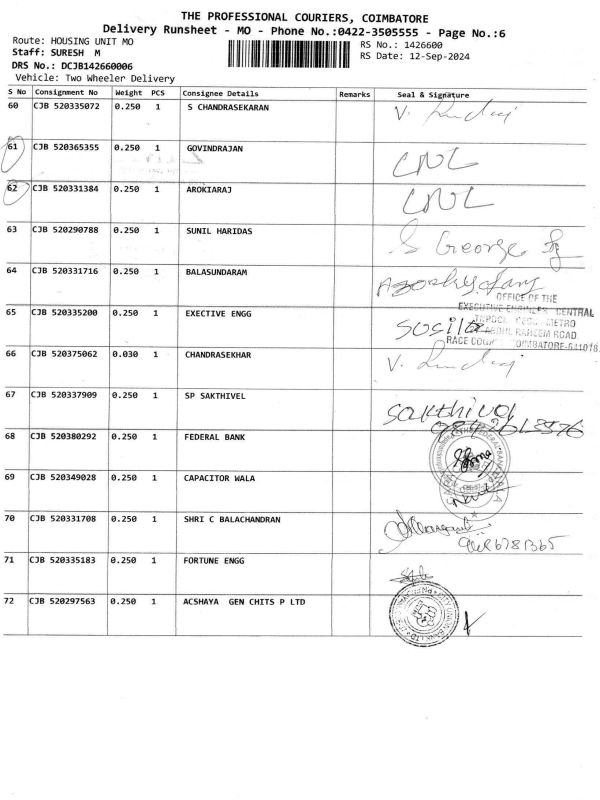 THE PROFESSIONAL COURIERS, COIMBATORE
Delivery Runsheet - MO - Phone No.:0422-3505555 - Page No.:6
Route: HOUSING UNIT MO
RS No.: 1426600
Staff: SURESH M
RS Date: 12-Sep-2024
DRS No.: DCJB142660006
Vehicle: Two Wheeler Delivery
S No Consignment No Weight PCS Consignee Details Remarks Seal & Signature
60 CJB 520335072 0.250 1 S CHANDRASEKARAN V.
61 CJB 520365355 0.250 1 GOVINDRAJAN
62 CJB 520331384 0.250 1 AROKIARAJ
63 CJB 520290788 0.250 1 SUNIL HARIDAS S George
64 CJB 520331716 0.250 1 BALASUNDARAM
OFFICE OF THE
65 CJB 520335200 0.250 1 EXECTIVE ENGG
EXECUTIVE ENGINEER CENTRAL
METRO
ABDUL RAHEEM ROAD
RACE COURSE COIMBATORE-641018
66 CJB 520375062 0.030 1 CHANDRASEKHAR V.
67 CJB 520337909 0.250 1 SP SAKTHIVEL sakthivel
68 CJB 520380292 0.250 1 FEDERAL BANK
69 CJB 520349028 0.250 1 CAPACITOR WALA
70 CJB 520331708 0.250 1 SHRI C BALACHANDRAN
71 CJB 520335183 0.250 1 FORTUNE ENGG
72 CJB 520297563 0.250 1 ACSHAYA GEN CHITS P LTD